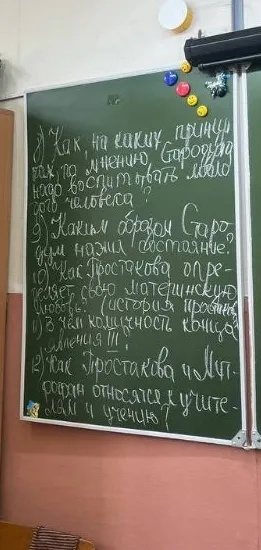 8) Как, на каких принци
пах, по мнению, Стародума
надо воспитывать моло
дого человека?
9) Каким образом Старо
дум нажил состояние?
10) Как Простакова опре-
деляет свою материнскую
любовь? (история простак
11) В чём комичность конца
явления III?
12) Как Простакова и Мит-
рофан относятся к учите-
лям и учению?